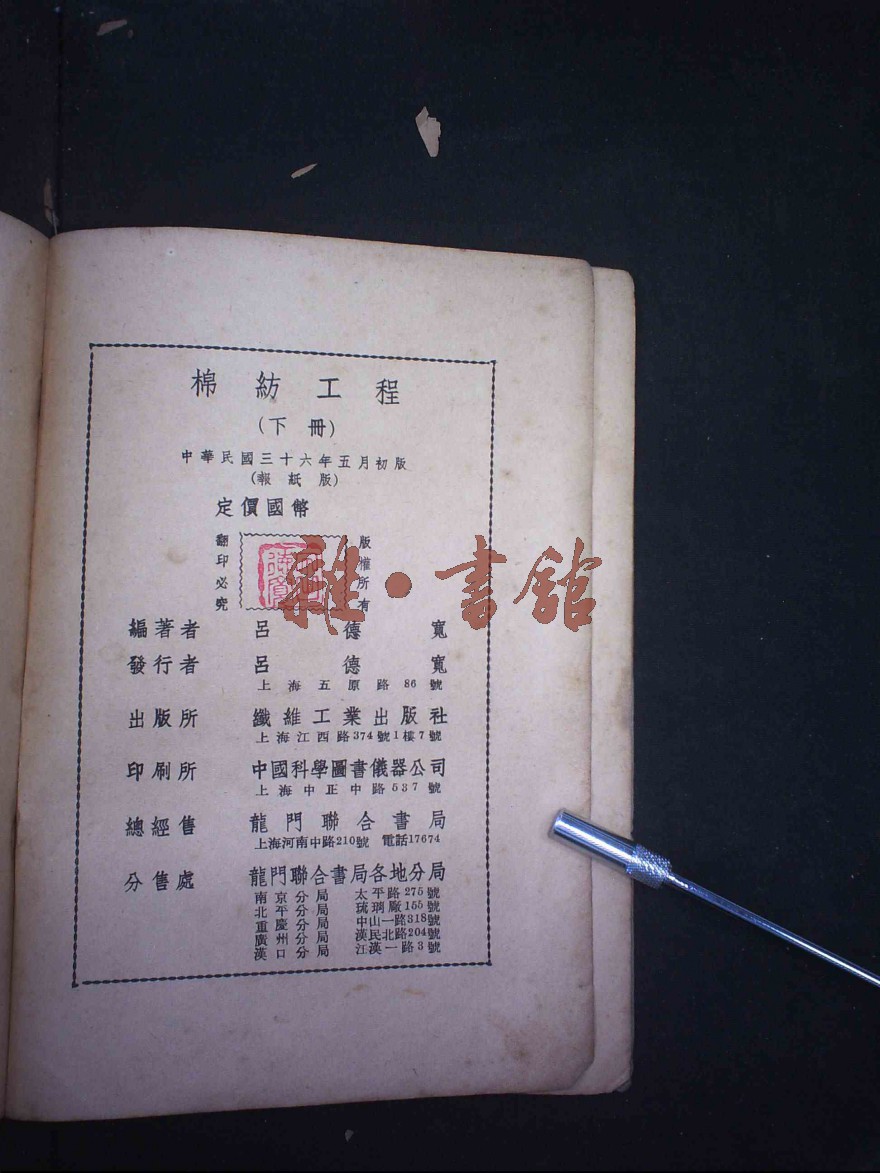 棉紡工程
(下冊)
中華民國三十六年五月初版
(報紙版)
定價國幣
版權所有
翻印必究
雜·書館
編著者 呂德寬
發行者 呂德寬
上海五原路86號
出版所 纖維工業出版社
上海江西路374號1樓7號
印刷所 中國科學圖書儀器公司
上海中正中路537號
總經售 龍門聯合書局
上海河南中路210號 電話17674
分售處 龍門聯合書局各地分局
南京分局 太平路275號
北平分局 琉璃廠155號
重慶分局 中山一路318號
廣州分局 漢民北路204號
漢口分局 江漢一路3號